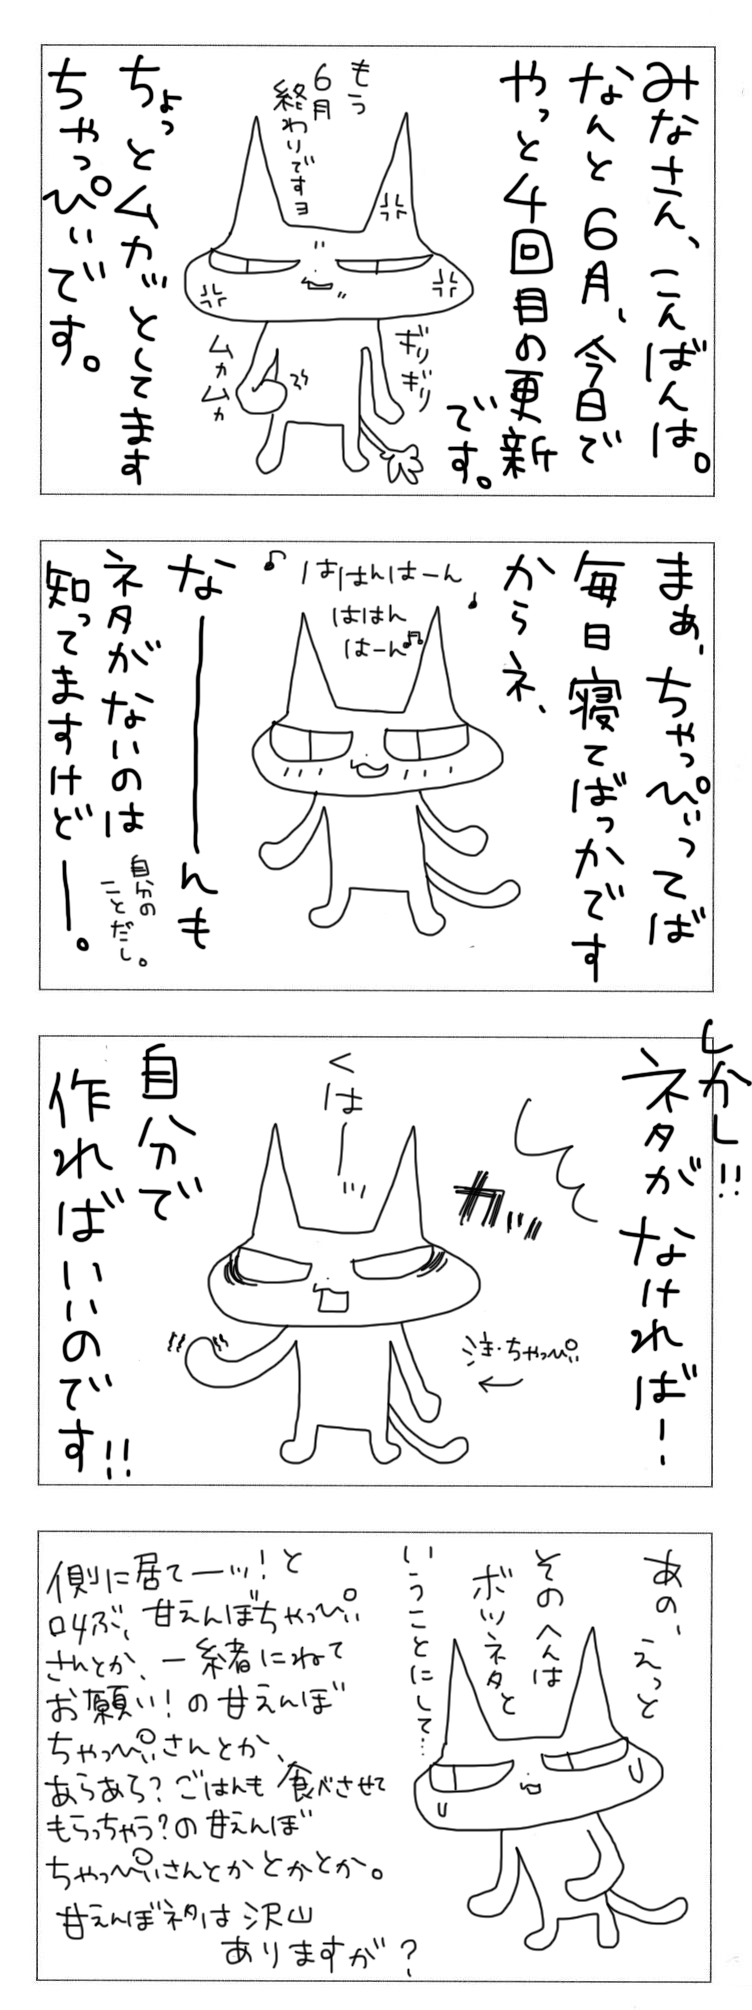 みなさん、こんばんは。
なんと6月、今日で
やっと4回目の更新
です。
もう
6月
終わりですヨ
ギリギリ
ムカムカ
ちょっとムカッとしてます
ちゃっぴぃです。
まぁ、ちゃっぴぃってば
毎日寝てばっかです
からネ、
♪はははんはーん♪
ははん
はーん♫
なーーんも
ネタがないのは
知ってますけどー。
自分の
ことだし。
しかし!!
ネタがなければー!
カッ
くはーッ
注・ちゃっぴぃ
←
自分で
作ればいいのです!!
あの、えっと
そのへんは
ボツネタと
いうことにして…
側に居てーッ!と
叫ぶ、甘えんぼちゃっぴぃ
さんとか、一緒にねて
お願い!の甘えんぼ
ちゃっぴぃさんとか、
あらあら?ごはんも食べさせて
もらっちゃう?の甘えんぼ
ちゃっぴぃさんとかとかとか。
甘えんぼネタは沢山
ありますが?